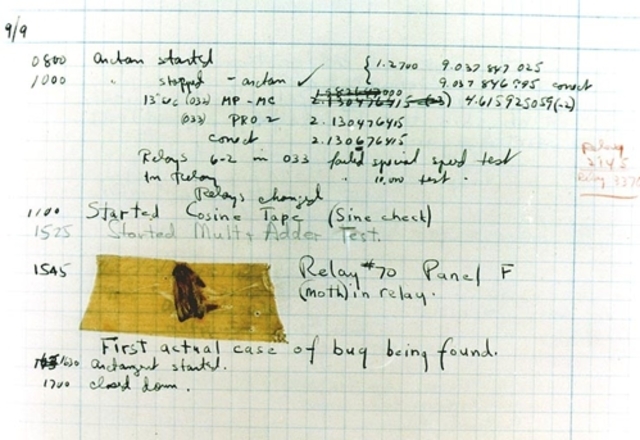 9/9
0800 arctan started { 1.2700 9.037 847 025
1000 " stopped - arctan ✓ 9.037 846 795 correct
13"uc (032) MP - MC 2.130476415 (-3) 4.615925059(-2)
(033) PRO 2 2.130476415
correct 2.130676415
Relays 6-2 in 033 failed special speed test
In Relay " 10.000 test.
Relay
2145
Relay 3370
Relays changed
1100 Started Cosine Tape (Sine check)
1525 Started Mult+Adder Test.
1545 Relay #70 Panel F
(moth) in relay.
First actual case of bug being found.
1630 arctangent started.
1700 closed down.